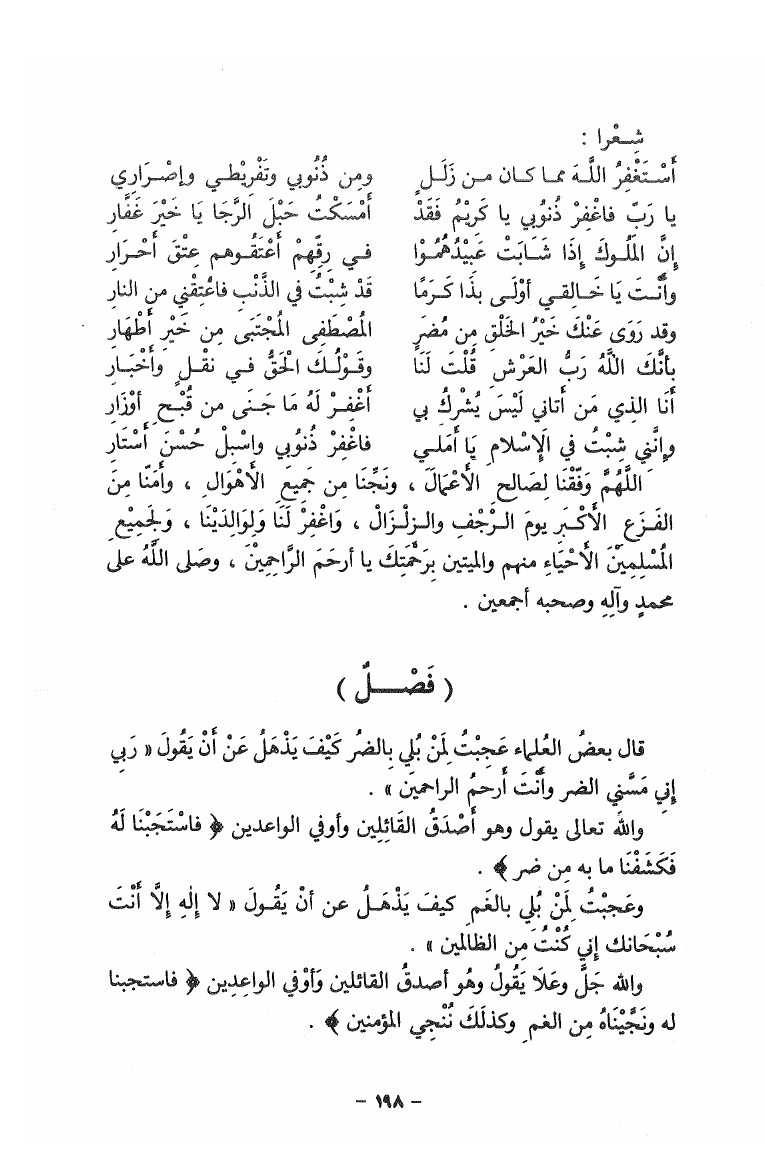 شِعْرا :
أَسْتَغْفِرُ اللَّهَ مما كان من زَلَلٍ ومِن ذُنُوبي وتَفْرِيْطي وإصْرَارِي
يا رَبّ فاغْفِرْ ذُنُوبي يا كَرِيْمُ فَقَدْ أَمْسَكْتُ حَبْلَ الرَّجَا يَا خَيْرَ غَفَّارِ
إنَّ الْمُلُوكَ إذَا شَابَتْ عَبِيْدُهُمُوْا في رِقِّهِمْ أَعْتَقُوهم عِتْقَ أَحْرارِ
وأَنْتَ يَا خَالِقي أوْلَى بذَا كَرَمًا قَدْ شِبْتُ في الذَّنْبِ فاعْتِقْني من النارِ
وقد رَوَى عَنْكَ خَيْرُ الخَلْقِ مِن مُضَرٍ المُصْطَفى المُجْتَبَى مِن خَيْرِ أَطْهَارِ
بأنَّكَ اللَّهُ رَبُّ العَرْشِ قُلْتَ لَنَا وقَوْلُكَ الْحَقُّ في نَقْلٍ وأَخْبَارِ
أنَا الذِي مَن أتاني لَيْسَ يُشْرِكُ بي أغْفِرْ لَهُ مَا جَنَى من قُبْحِ أوْزَارِ
وإنَّني شِبْتُ في الإِسْلامِ يَا أمَلي فاغْفِرْ ذُنُوبي واسْبِلْ حُسْنَ أَسْتَارِ
اللَّهُمَّ وَفِّقْنَا لِصَالحِ الأَعْمَالَ ، ونَجِّنَا مِن جَمِيعَ الأَهْوَالِ ، وأمَنّا مِنَ
الفَزَعِ الأَكْبَرِ يومَ الرَّجْفِ والزلْزَالْ ، وَاغْفِرْ لَنَا وَلِوَالدَيْنَا ، وَلِجَمِيْعِ
المُسْلِمِيْنَ الأَحْيَاءِ منهم والميتين بِرَحْمَتِكَ يا أرحَمَ الرَّاحِمِيْنَ ، وصَلى اللَّهُ على
محمدٍ وآلِهِ وصحبه أجمعين .
( فَصْلٌ )
قال بعضُ العُلماء عَجِبْتُ لِمَنْ بُلي بالضُر كَيْفَ يَذْهَلُ عَنْ أَنْ يَقُولَ « رَبي
إني مَسَّني الضر وأَنْتَ أرحمُ الراحمينَ » .
والله تعالى يقول وهو أَصْدَقُ القَائِلِين وأوفي الواعدين ﴿ فاسْتَجَبْنَا لَهُ
فَكَشَفْنَا ما به مِن ضر ﴾ .
وعَجِبْتُ لِمَنْ بُلي بالغَمِ كيفَ يَذْهَلُ عن أنْ يَقُولَ « لا إلهِ إلاَّ أَنْتَ
سُبْحَانك إني كُنْتُ مِن الظالمين » .
والله جَلَّ وعَلَا يَقُولُ وهُو أصدقُ القائلين وَأوْفي الواعِدِين ﴿ فاستجبنا
له ونَجَّيْنَاهُ مِن الغم وكذلَكَ نُنْجي المؤمنين ﴾ .
– ١٩٨ –